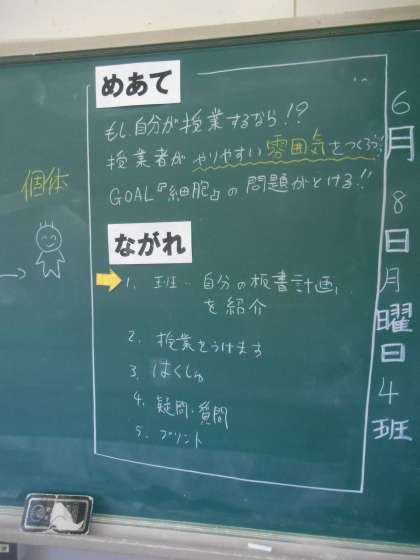 めあて
もし自分が授業するなら!?
授業者がやりやすい雰囲気をつくろう!!
GOAL『細胞』の問題がとける!!
ながれ
1. 班・自分の板書計画
を紹介
2. 授業をうけます
3. はくしゅ
4. 疑問・質問
5. プリント
個体
6月8日月曜日4班